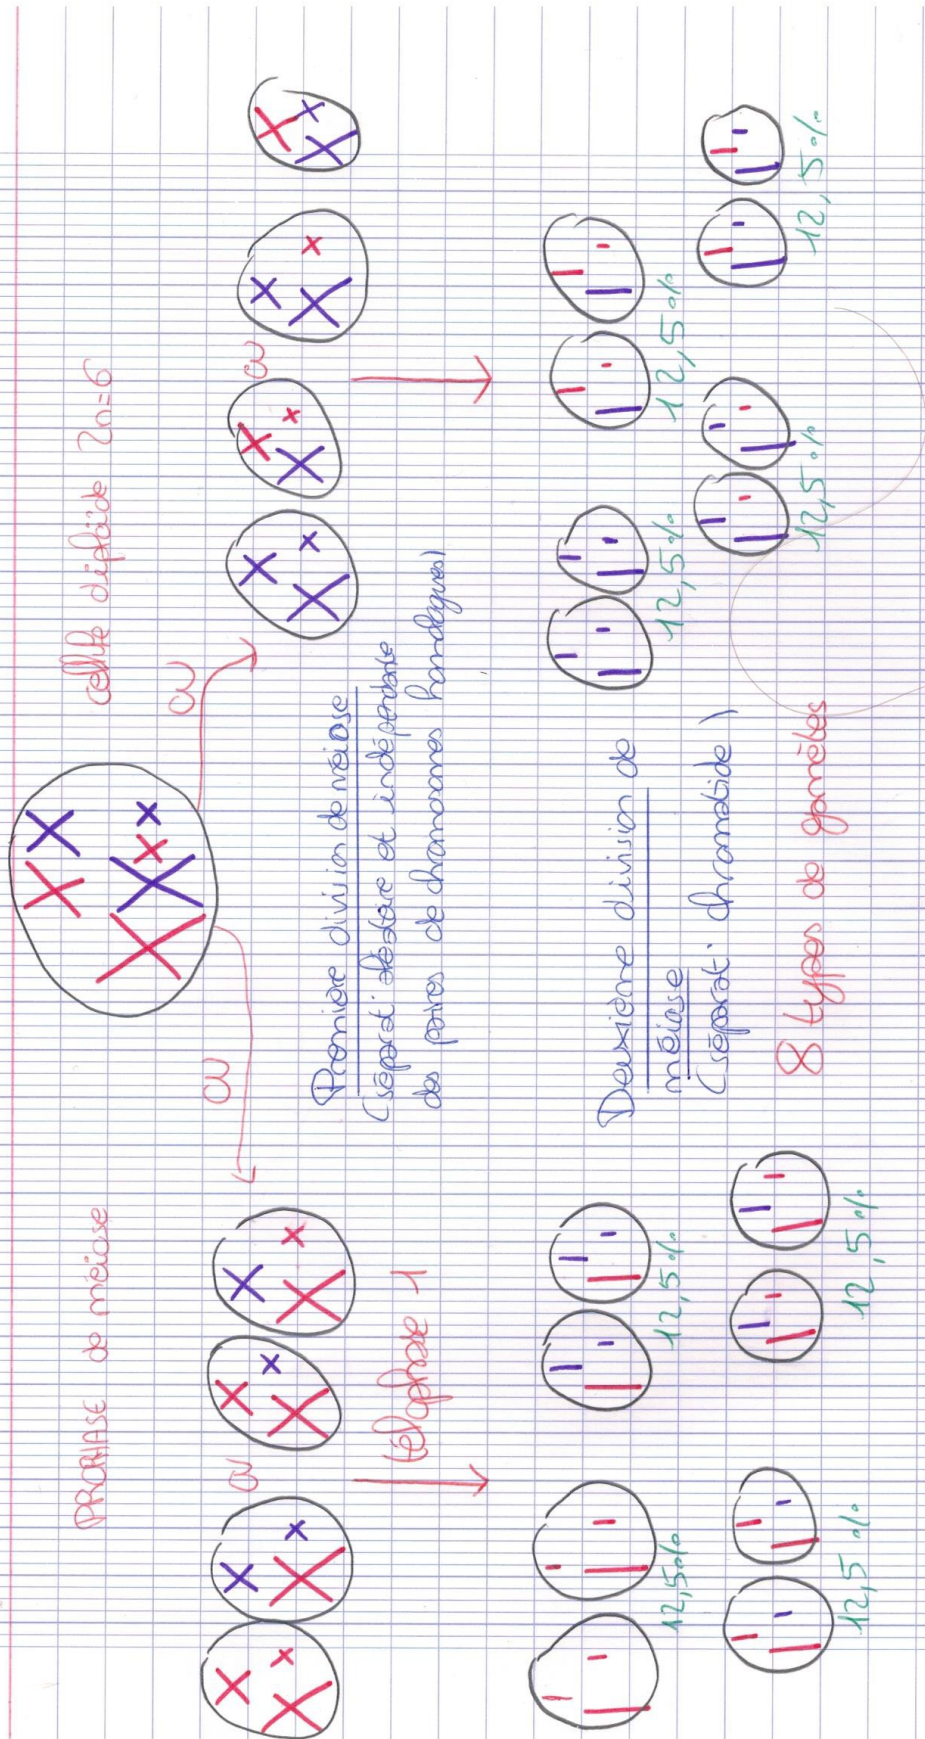 PROPHASE de méiose
cellule diploïde 2n=6
ou
ou
ou
ou
Première division de méiose
(séparat° aléatoire et indépendante
des paires de chromosomes homologues)
télophase 1
Deuxième division de
méiose
(séparat° chromatide)
12,5%
12,5%
12,5%
12,5%
12,5%
12,5%
12,5%
12,5%
8 types de gamètes